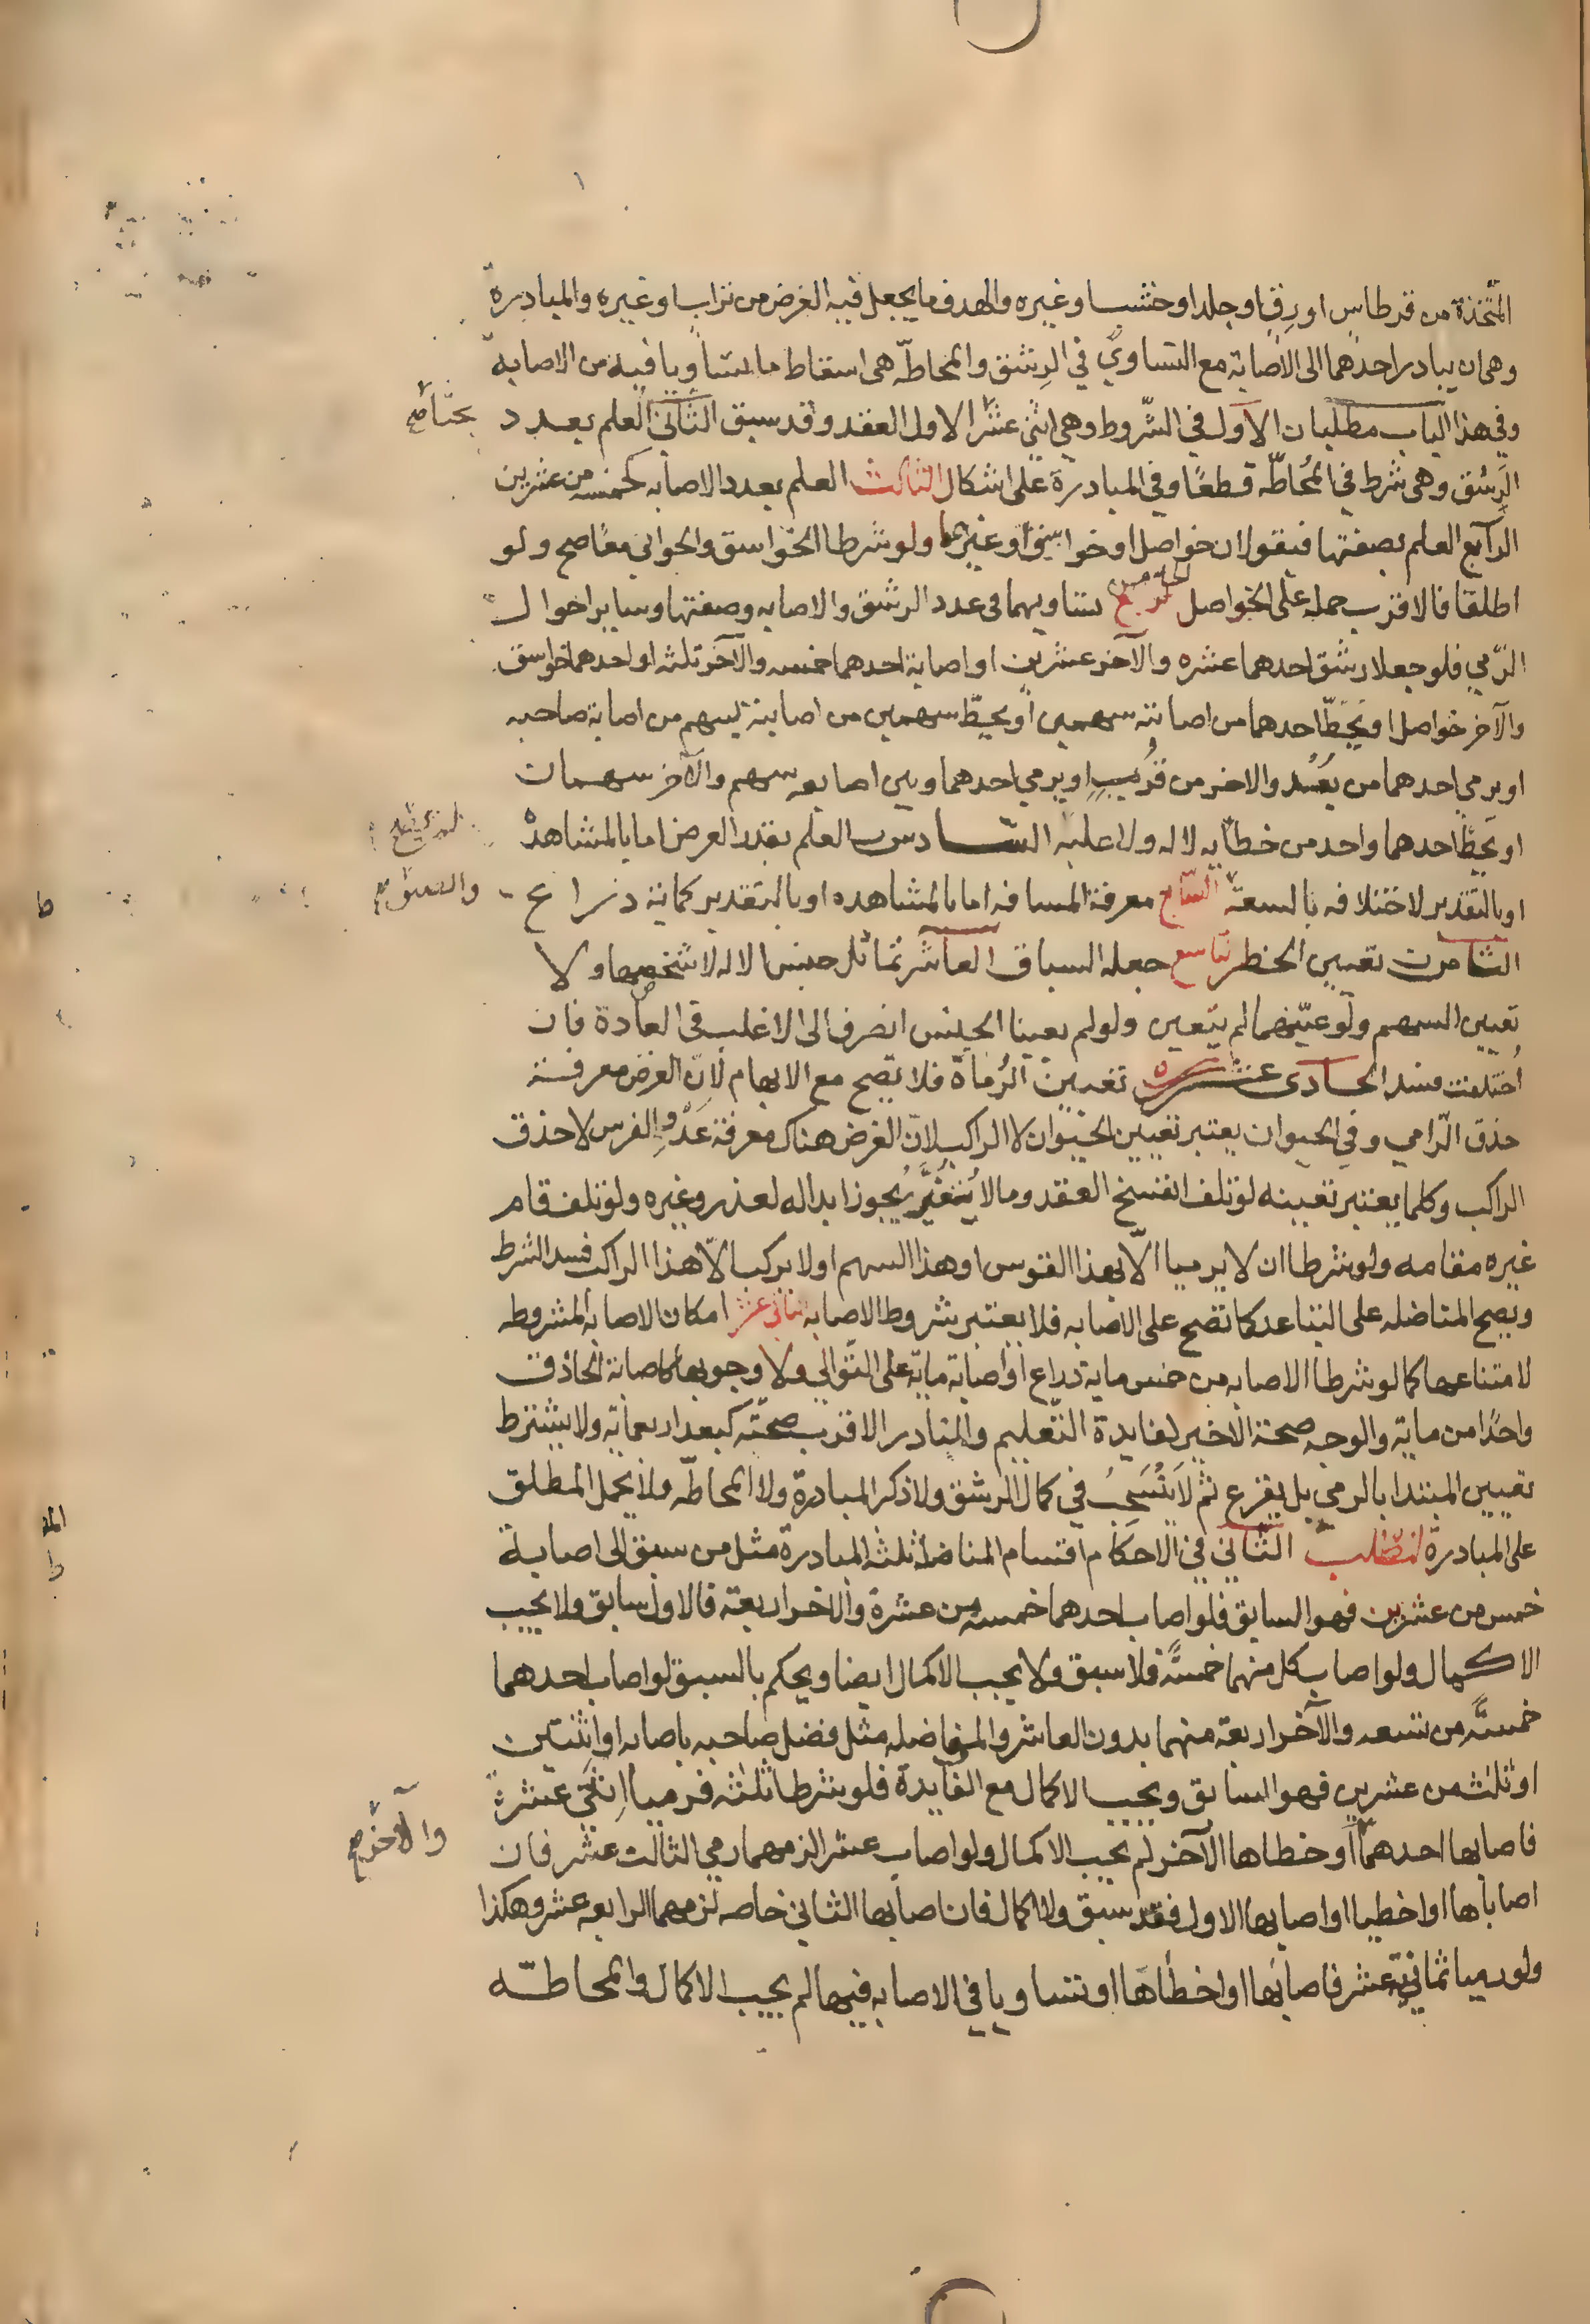 المتّخذة من قرطاس او رِق او جلد او خشب او غيره والهدف ما يجعل فيه الغرض من تراب او غيره والمبادرة
وهى ان يبادر احدهما الى الاصابة مع التساوي في الرِشق والمحاطّه هى اسقاط ما يتساويا فيه من الاصابة
وفي هذا الباب مطلبان الاول في الشّروط وهي اثنى عشر الاول العقد وقد سبق الثاني العلم بعدد
الرِشق وهى شرط في المُحاطّه قطعًا وفي المبادرة على اشكال الثالث العلم بعدد الاصابه كخمسه من عشرين
الرابع العلم بصفتها فيقولان خواصل او خواسق او غيرهما ولو شرطا الخواسق والحوابي معًا صح ولو
اطلقا فالاقرب حمله على الخواصل الخامس تساويهما فى عدد الرشق والاصابه وصفتها وساير احوال
الرّمي فلو جعلا رشق احدهما عشره والآخر عشرين او اصابة احدهما خمسه والآخر ثلثه او احدهما خواسق
والآخر خواصل او يَحُطّ احدهما من اصابته سهمين او يحطّ سهمين من اصابته بسهم من اصابة صاحبه
او يرمي احدهما من بُعْد والاخر من قُربٍ او يرمي احدهما وبين اصابعه سهم والآخر سهمان
او يَحُط احدهما واحد من خطائه لا له ولا عليه السادس العلم بقدر الغرض اما بالمشاهدة
او بالتقدير لاختلافه بالسعة السابع معرفة المسافه اما بالمشاهده او بالتقدير كماية ذراع
الثامن تعيين الخطر التاسع جعله السباق العاشر تماثل جنس الاله لا شخصها ولا
تعيين السهم ولو عيّنهما لم يتعين ولو لم يعينا الجنس انصرف الى الاغلب في العادة فان
اختلفت فسد الحادى عشر تعيين الرُماة فلا يصح مع الابهام لانّ الغرض معرفة
حذق الرّامي وفي الحيوان يعتبر تعيين الحيوان لا الراكب لانّ الغرض هناك معرفة عَدْوِ الفرس لا حذق
الراكب وكلما يعتبر تعيينه لو تلف انفسخ العقد وما لا يتعيّن يجوز ابداله لعذر وغيره ولو تلف قام
غيره مقامه ولو شرطا ان لا يرميا الّا بهذا القوس او هذا السهم او لا يركب الّا هذا الراكب فسد الشرط
ويصح المناضله على التباعد كما تصح على الاصابه فلا يعتبر شروط الاصابه الثاني عشر امكان الاصابه المشروطه
لا متناعها كما لو شرطا الاصابه من خمس ماية ذراع او اصابة ماية على التّوالي ولا وجوبها كاصابة الحاذق
واحدًا من ماية والوجه صحة الاخير لفايدة التّعليم والنادر الاقرب صحّته كبعد اربعماية ولا يشترط
تعيين المبتدا بالرمى بل يقرع ثم لا يَنْسَحِبُ في كمال الرشق ولا ذكر المبادرة ولا المحاطّه ولا يحمل المطلق
على المبادرة المطلب الثاني في الاحكام اقسام المناضلة ثلثه المبادرة مثل من سبق الى اصابة
خمس من عشرين فهو السابق فلو اصاب احدهما خمسه من عشرة والاخر اربعة فالاول سابق ولا يجب
الاكمال ولو اصاب كل منهما خمسة فلا سبق ولا يجب الاكمال ايضا ويحكم بالسبق لو اصاب احدهما
خمسة من تسعه والآخر اربعة منها بدون العاشر والمفاضله مثل فضل صاحبه باصابه او اثنتين
او ثلث من عشرين فهو السابق ويجب الاكمال مع الفايدة فلو شرطا ثلثه فرميا اثنتى عشرة
فاصابها احدهما او خطاها الآخر لم يجب الاكمال ولو اصاب عشر الزمهما رمي الثالث عشر فان
اصاباها او اخطيا او اصابها الاول فقد سبق ولا اكمال فان اصابها الثاني خاصه لزمهما الرابعه عشر وهكذا
ولو رميا ثمانية عشر فاصابها او اخطأها او تساويا في الاصابه فيها لم يجب الاكمال والمحاطّه
والآخر صح